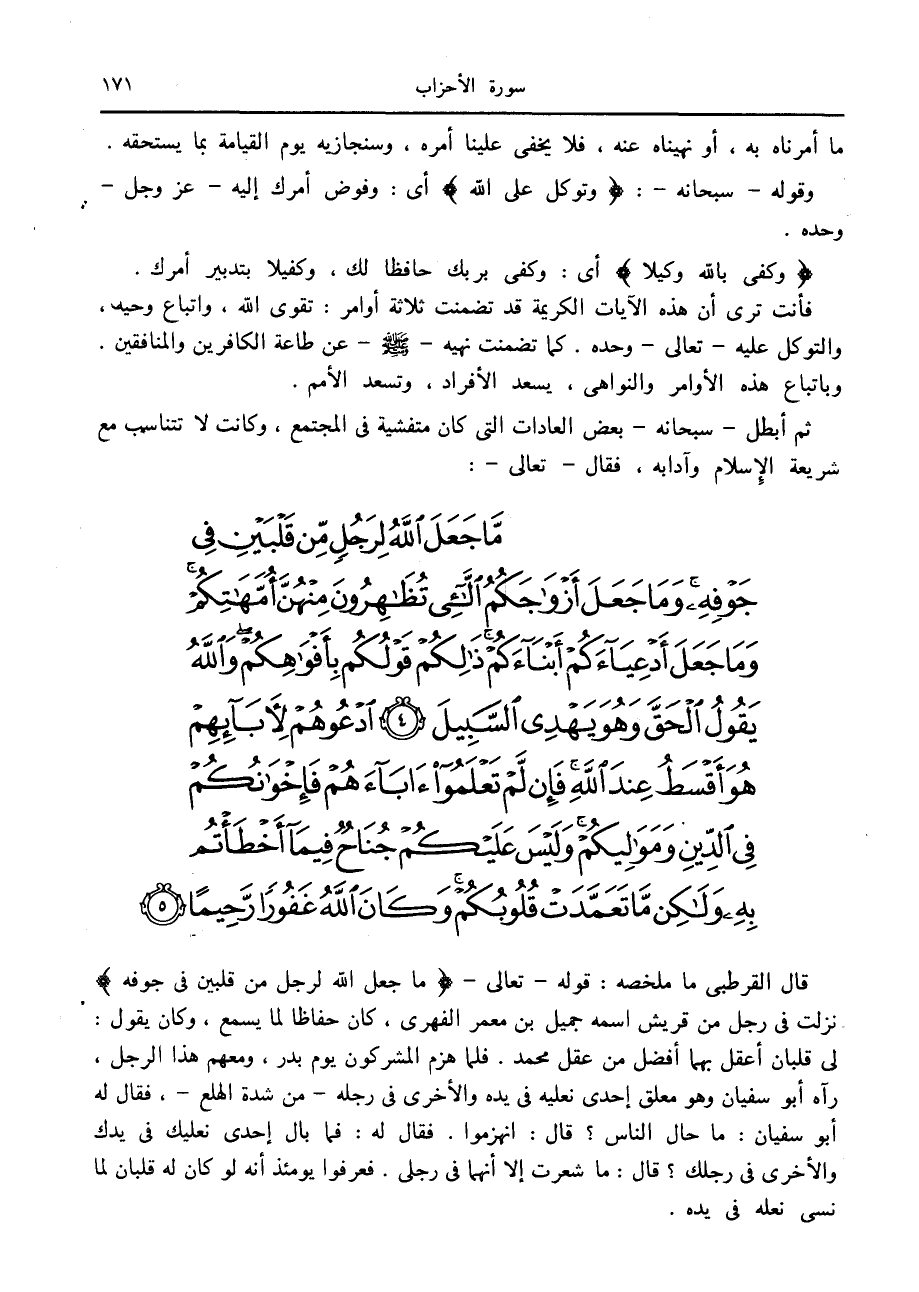 سورة الأحزاب ١٧١
ما أمرناه به ، أو نهيناه عنه ، فلا يخفى علينا أمره ، وسنجازيه يوم القيامة بما يستحقه .
وقوله - سبحانه - : ﴿ وتوكل على الله ﴾ أى : وفوض أمرك إليه - عز وجل -
وحده .
﴿ وكفى بالله وكيلا ﴾ أى : وكفى بربك حافظا لك ، وكفيلا بتدبير أمرك .
فأنت ترى أن هذه الآيات الكريمة قد تضمنت ثلاثة أوامر : تقوى الله ، واتباع وحيه ،
والتوكل عليه - تعالى - وحده . كما تضمنت نهيه - ﷺ - عن طاعة الكافرين والمنافقين .
وباتباع هذه الأوامر والنواهى ، يسعد الأفراد ، وتسعد الأمم .
ثم أبطل - سبحانه - بعض العادات التى كان متفشية فى المجتمع ، وكانت لا تتناسب مع
شريعة الإسلام وآدابه ، فقال - تعالى - :
مَّا جَعَلَ ٱللَّهُ لِرَجُلٍ مِّن قَلْبَيْنِ فِى
جَوْفِهِۦۚ وَمَا جَعَلَ أَزْوَٰجَكُمُ ٱلَّٰٓـِٔى تُظَٰهِرُونَ مِنْهُنَّ أُمَّهَٰتِكُمْۚ
وَمَا جَعَلَ أَدْعِيَآءَكُمْ أَبْنَآءَكُمْۚ ذَٰلِكُمْ قَوْلُكُم بِأَفْوَٰهِكُمْۖ وَٱللَّهُ
يَقُولُ ٱلْحَقَّ وَهُوَ يَهْدِى ٱلسَّبِيلَ ﴿٤﴾ ٱدْعُوهُمْ لِأَبَآئِهِمْ
هُوَ أَقْسَطُ عِندَ ٱللَّهِۚ فَإِن لَّمْ تَعْلَمُوٓا۟ ءَابَآءَهُمْ فَإِخْوَٰنُكُمْ
فِى ٱلدِّينِ وَمَوَٰلِيكُمْۚ وَلَيْسَ عَلَيْكُمْ جُنَاحٌ فِيمَآ أَخْطَأْتُم
بِهِۦ وَلَٰكِن مَّا تَعَمَّدَتْ قُلُوبُكُمْۚ وَكَانَ ٱللَّهُ غَفُورًا رَّحِيمًا ﴿٥﴾
قال القرطبى ما ملخصه : قوله - تعالى - ﴿ ما جعل الله لرجل من قلبين فى جوفه ﴾
نزلت فى رجل من قريش اسمه جميل بن معمر الفهرى ، كان حفاظا لما يسمع ، وكان يقول :
لى قلبان أعقل بهما أفضل من عقل محمد . فلما هزم المشركون يوم بدر ، ومعهم هذا الرجل ،
رآه أبو سفيان وهو معلق إحدى نعليه فى يده والأخرى فى رجله - من شدة الهلع - ، فقال له
أبو سفيان : ما حال الناس ؟ قال : انهزموا . فقال له : فما بال إحدى نعليك فى يدك
والأخرى فى رجلك ؟ قال : ما شعرت إلا أنهما فى رجلى . فعرفوا يومئذ أنه لو كان له قلبان لما
نسى نعله فى يده .